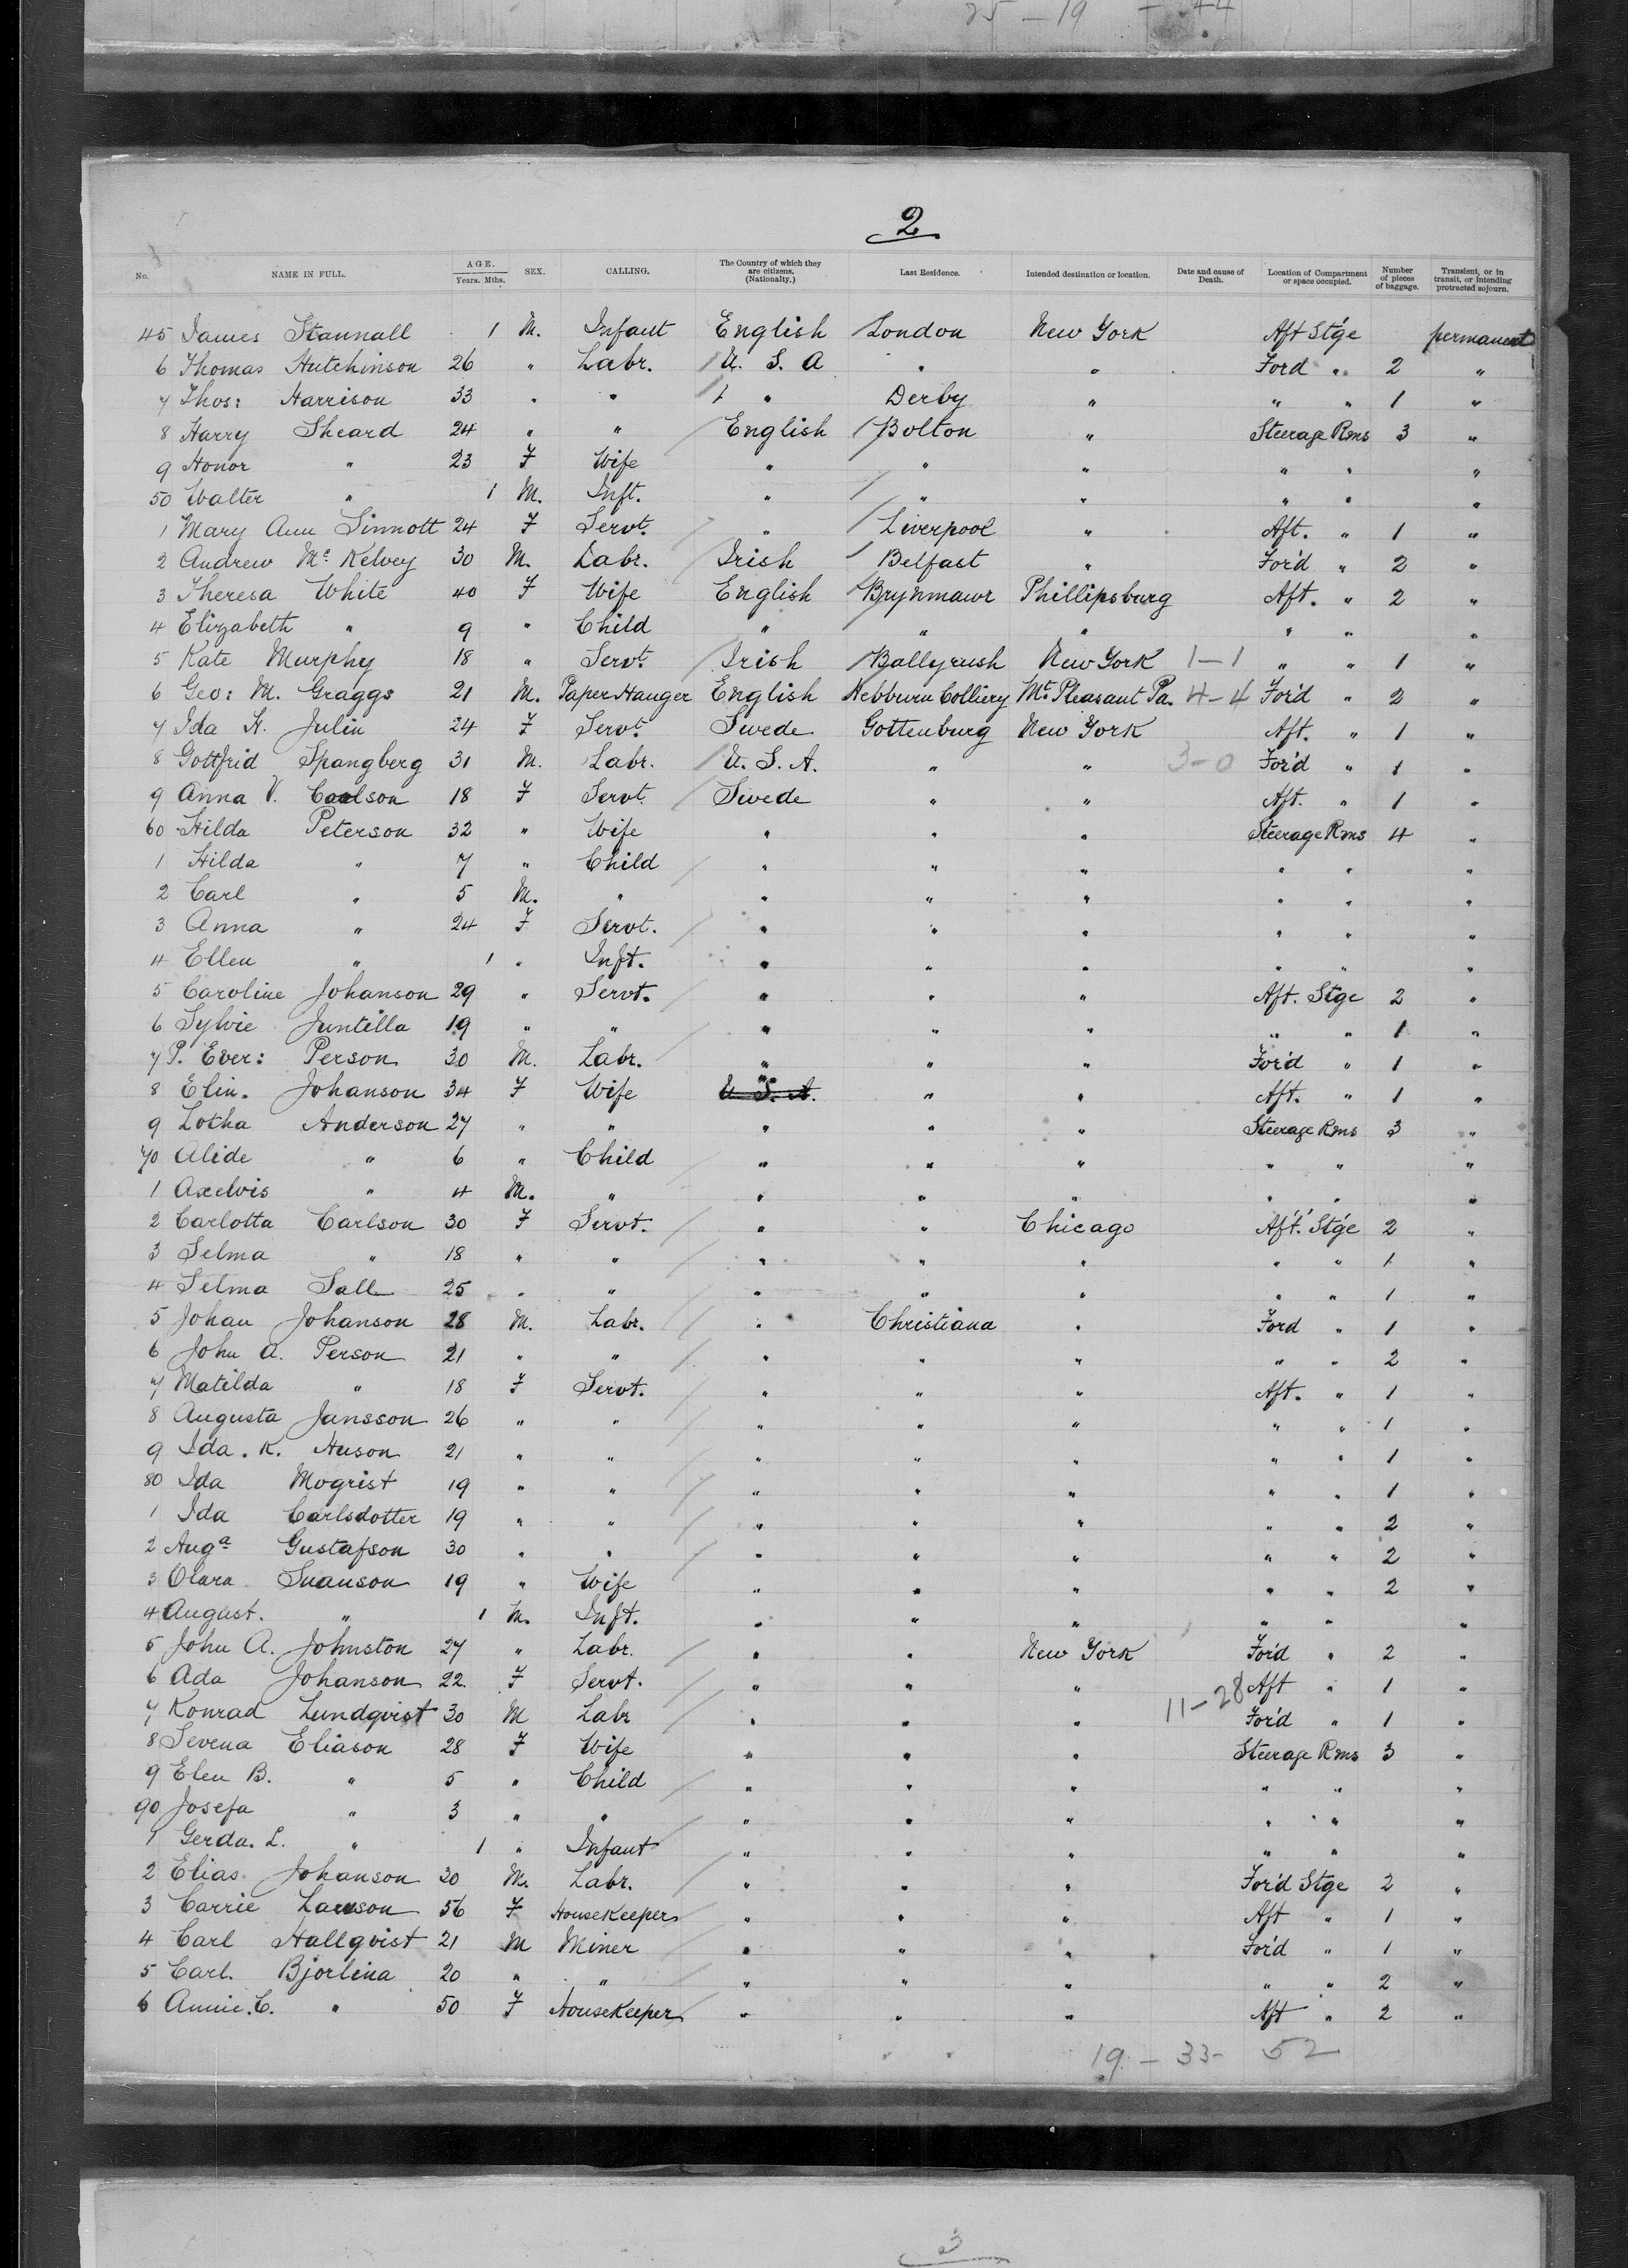 25 — 19 — 44
2
No. NAME IN FULL. AGE. Years. Mths. SEX. CALLING. The Country of which they are citizens. (Nationalty.) Last Residence. Intended destination or location. Date and cause of Death. Location of Compartment or space occupied. Number of pieces of baggage. Transient, or in transit, or intending protracted sojourn.
45 James Stannall 1 M. Infant English London New York Aft Stge permanent
6 Thomas Hutchinson 26 " Labr. U. S. A " " Ford " 2 "
7 Thos: Harrison 33 " " " Derby " " " 1 "
8 Harry Sheard 24 " " English Bolton " Steerage Rms 3 "
9 Honor " 23 F Wife " " " " " "
50 Walter " 1 M. Inft. " " " " " "
1 Mary Ann Sinnott 24 F Servt. " Liverpool " Aft. " 1 "
2 Andrew Mc Kelvey 30 M. Labr. Irish Belfast " For'd " 2 "
3 Theresa White 40 F Wife English Brynmawr Phillipsburg Aft. " 2 "
4 Elizabeth " 9 " Child " " " " " "
5 Kate Murphy 18 " Servt. Irish Ballyrush New York 1—1 " " 1 "
6 Geo: M. Graggs 21 M. Paper Hanger English Hebburn Colliery Mt. Pleasant Pa. 4—4 For'd " 2 "
7 Ida H. Julin 24 F Servt. Swede Gottenburg New York Aft. " 1 "
8 Gottfrid Spangberg 31 M. Labr. U. S. A. " " 3—0 For'd " 1 "
9 Anna V. Coalson 18 F Servt. Swede " " Aft. " 1 "
60 Hilda Peterson 32 " Wife " " " Steerage Rms 4 "
1 Hilda " 7 " Child " " " " " "
2 Carl " 5 M. " " " " " " "
3 Anna " 24 F Servt. " " " " " "
4 Ellen " 1 " Inft. " " " " " "
5 Caroline Johanson 29 " Servt. " " " Aft. Stge 2 "
6 Sylvie Juntilla 19 " " " " " " " 1 "
7 P. Ever: Person 30 M. Labr. " " " For'd " 1 "
8 Elin. Johanson 34 F Wife " U. S. A. " " Aft. " 1 "
9 Lotha Anderson 27 " " " " " Steerage Rms 3 "
70 Alide " 6 " Child " " " " " "
1 Axelvis " 4 M. " " " " " " "
2 Carlotta Carlson 30 F Servt. " " Chicago Aft. Stge 2 "
3 Selma " 18 " " " " " " " 1 "
4 Selma Sall 25 " " " " " " " 1 "
5 Johan Johanson 28 M. Labr. " Christiana " Ford " 1 "
6 John A. Person 21 " " " " " " " 2 "
7 Matilda " 18 F Servt. " " " Aft. " 1 "
8 Augusta Jansson 26 " " " " " " " 1 "
9 Ida. K. Huson 21 " " " " " " " 1 "
80 Ida Mogrist 19 " " " " " " " 1 "
1 Ida Carlsdotter 19 " " " " " " " 2 "
2 Auga Gustafson 30 " " " " " " " 2 "
3 Olara Suanson 19 " Wife " " " " " 2 "
4 August. " 1 M. Inft. " " " " " "
5 John A. Johnston 27 " Labr. " " New York For'd " 2 "
6 Ada Johanson 22 F Servt. " " " Aft " 1 "
7 Konrad Lundqvist 30 M Labr " " " 11—28 For'd " 1 "
8 Sevena Eliason 28 F Wife " " " Steerage Rms 3 "
9 Elen B. " 5 " Child " " " " " "
90 Josefa " 3 " " " " " " " "
1 Gerda. L. " 1 " Infant " " " " " "
2 Elias Johanson 30 M. Labr. " " " For'd Stge 2 "
3 Carrie Lawson 56 F HouseKeeper " " " Aft " 1 "
4 Carl Hallqvist 21 M Miner " " " For'd " 1 "
5 Carl. Bjorlina 20 " " " " " " " 2 "
6 Annie. C. " 50 F HouseKeeper " " " Aft " 2 "
19 — 33 — 52
3